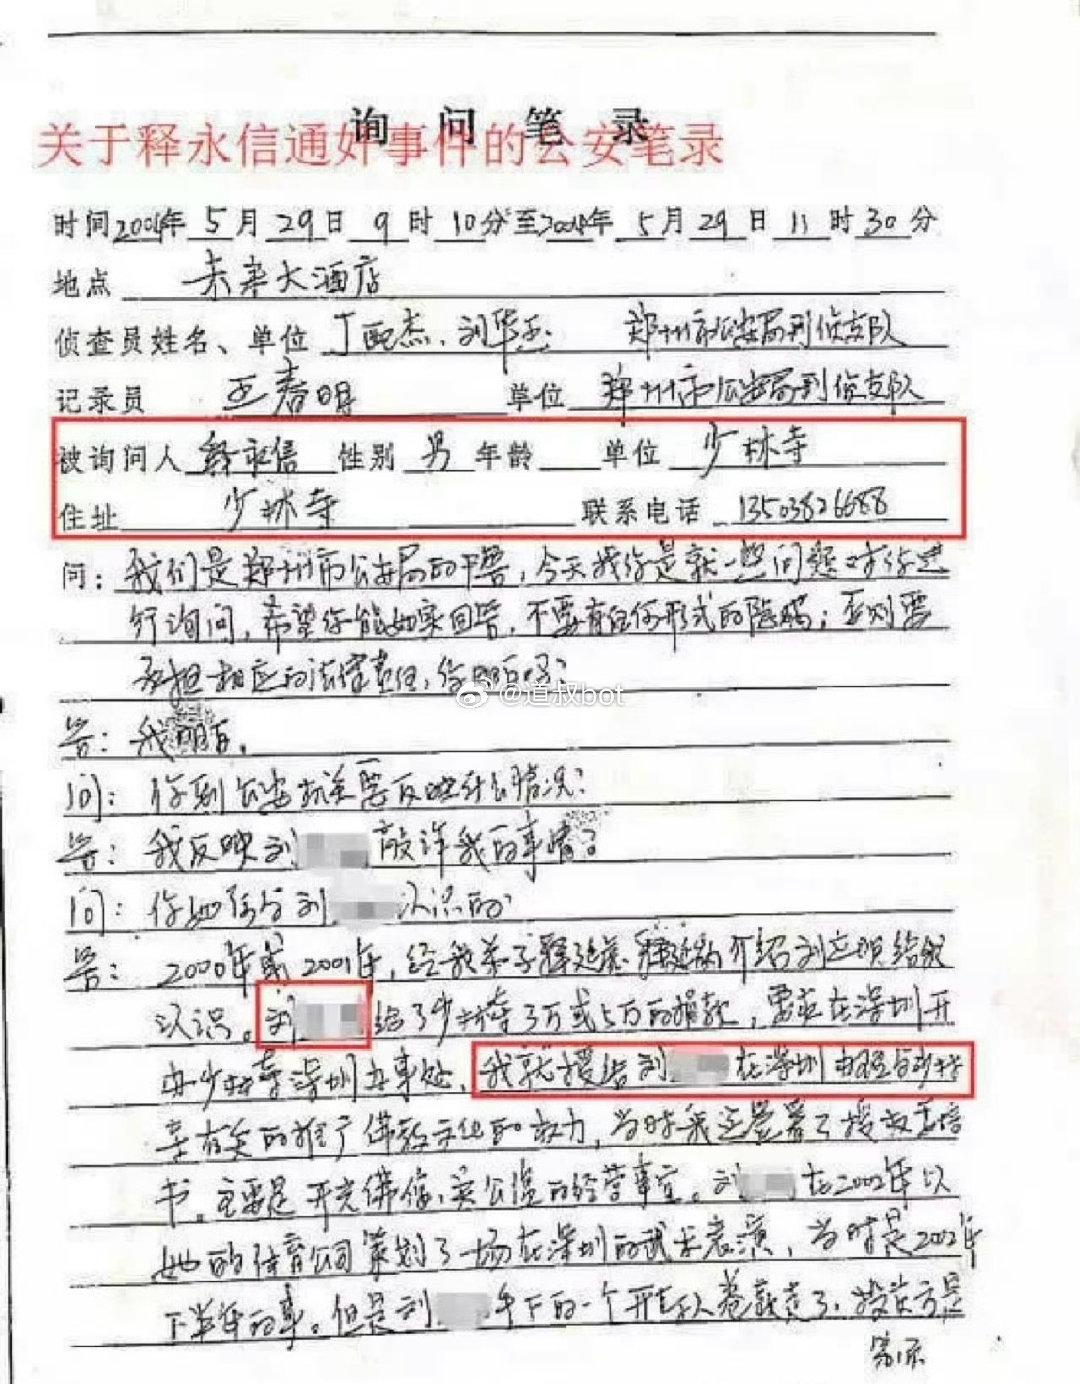 询问笔录
关于释永信通奸事件的公安笔录
时间2004年5月29日9时10分至2004年5月29日11时30分
地点 未来大酒店
侦查员姓名、单位 丁 杰、刘华玉 郑州市公安局刑侦支队
记录员 王春明 单位 郑州市公安局刑侦支队
被询问人 释永信 性别 男 年龄 单位 少林寺
住址 少林寺 联系电话 13503826688
问：我们是郑州市公安局的干警，今天我们是就一些问题对你进
行询问，希望你能如实回答，不要有任何形式的隐瞒；否则要
承担相应的法律责任，你明白吗？
@道叔bot
答：我明白。
问：你到公安机关要反映什么情况？
答：我反映刘 敲诈我的事情？
问：你如何与刘 认识的
答：2000年或2001年，经我弟子释延 介绍刘 给我
认识。刘 给了少林寺3万或5万的捐款，要求在深圳开
办少林寺深圳办事处，我就授给刘 在深圳办理与少林
寺有关的推广佛教文化的权力，当时我还签署了授权委托
书。主要是开光佛像、实公益的经营事宜。刘 在2002年以
她的体育公司策划了一场在深圳的武术表演，当时是2002年
下半年的事。但是刘 手下的一个开车人卷款走了，投资方是
第1页